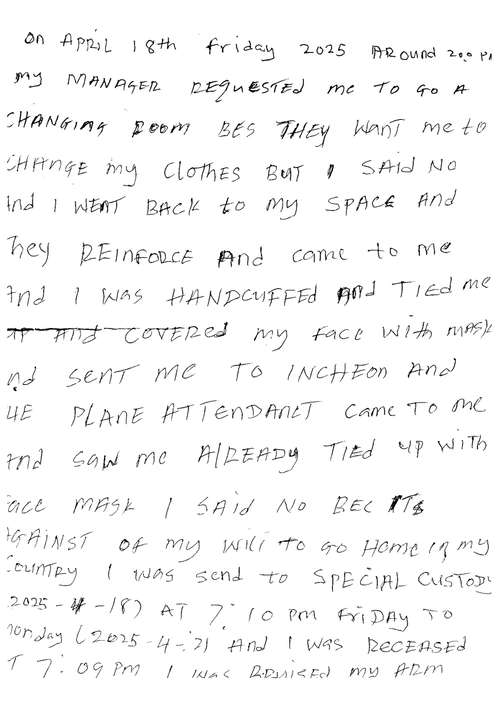 on APRIL 18th friday 2025 AROUND 2:00 PM
my MANAGER REQUESTEd me TO GO A
CHANGING ROOM BES THEY WanT me to
CHANGE my CLOTHES BUT I SAid NO
And I WENT BACK to my SPACE And
They REINFORCE And came to me
And I WAS HANDCUFFEd And TIEd me
UP And COVERED my face with mask
And SENT ME TO INCHEON And
THE PLANE ATTENDANCT Came TO me
And SAW me AlREADY TIED up with
face MASK I SAid NO BEC ITS
AGAINST of my Will to go Home in my
COUNTRY I was send to SPECIAL CUSTODY
(2025-4-18) AT 7:10 pm FRIDAY TO
monday (2025-4-21 And I WAS RECEASED
AT 7:09 PM I WAS BRUISED my ARM